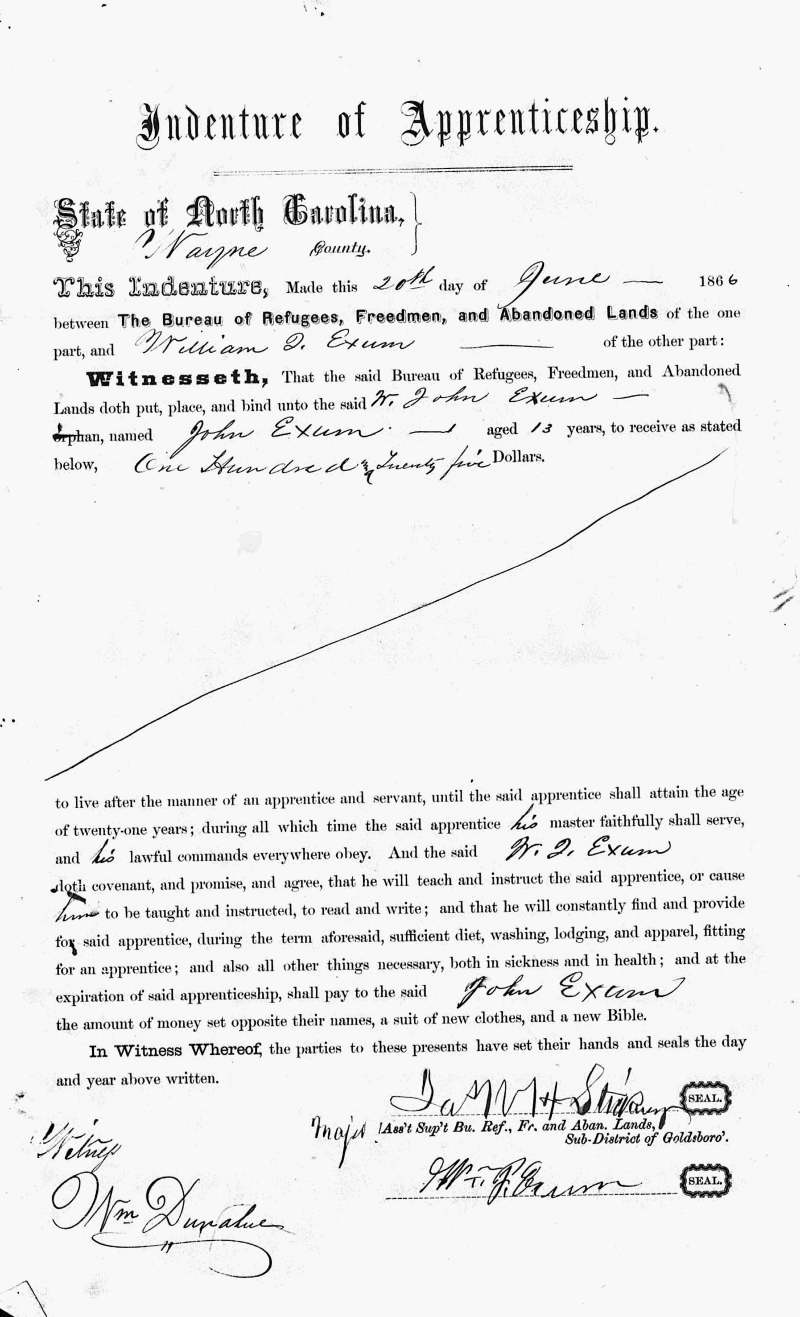 Indenture of Apprenticeship.
State of North Carolina,
Wayne County.
This Indenture, Made this 20th day of June 1866
between The Bureau of Refugees, Freedmen, and Abandoned Lands of the one
part, and William J. Exum of the other part:
Witnesseth, That the said Bureau of Refugees, Freedmen, and Abandoned
Lands doth put, place, and bind unto the said W. John Exum
orphan, named John Exum aged 13 years, to receive as stated
below, One Hundred & Twenty five Dollars.
to live after the manner of an apprentice and servant, until the said apprentice shall attain the age
of twenty-one years; during all which time the said apprentice his master faithfully shall serve,
and his lawful commands everywhere obey. And the said W. J. Exum
doth covenant, and promise, and agree, that he will teach and instruct the said apprentice, or cause
him to be taught and instructed, to read and write; and that he will constantly find and provide
for said apprentice, during the term aforesaid, sufficient diet, washing, lodging, and apparel, fitting
for an apprentice; and also all other things necessary, both in sickness and in health; and at the
expiration of said apprenticeship, shall pay to the said John Exum
the amount of money set opposite their names, a suit of new clothes, and a new Bible.
In Witness Whereof, the parties to these presents have set their hands and seals the day
and year above written.
SEAL.
Maj & Ass't Sup't Bu. Ref., Fr. and Aban. Lands,
Sub-District of Goldsboro'.
Witness
Wm. Exum SEAL.
Wm Dunahue